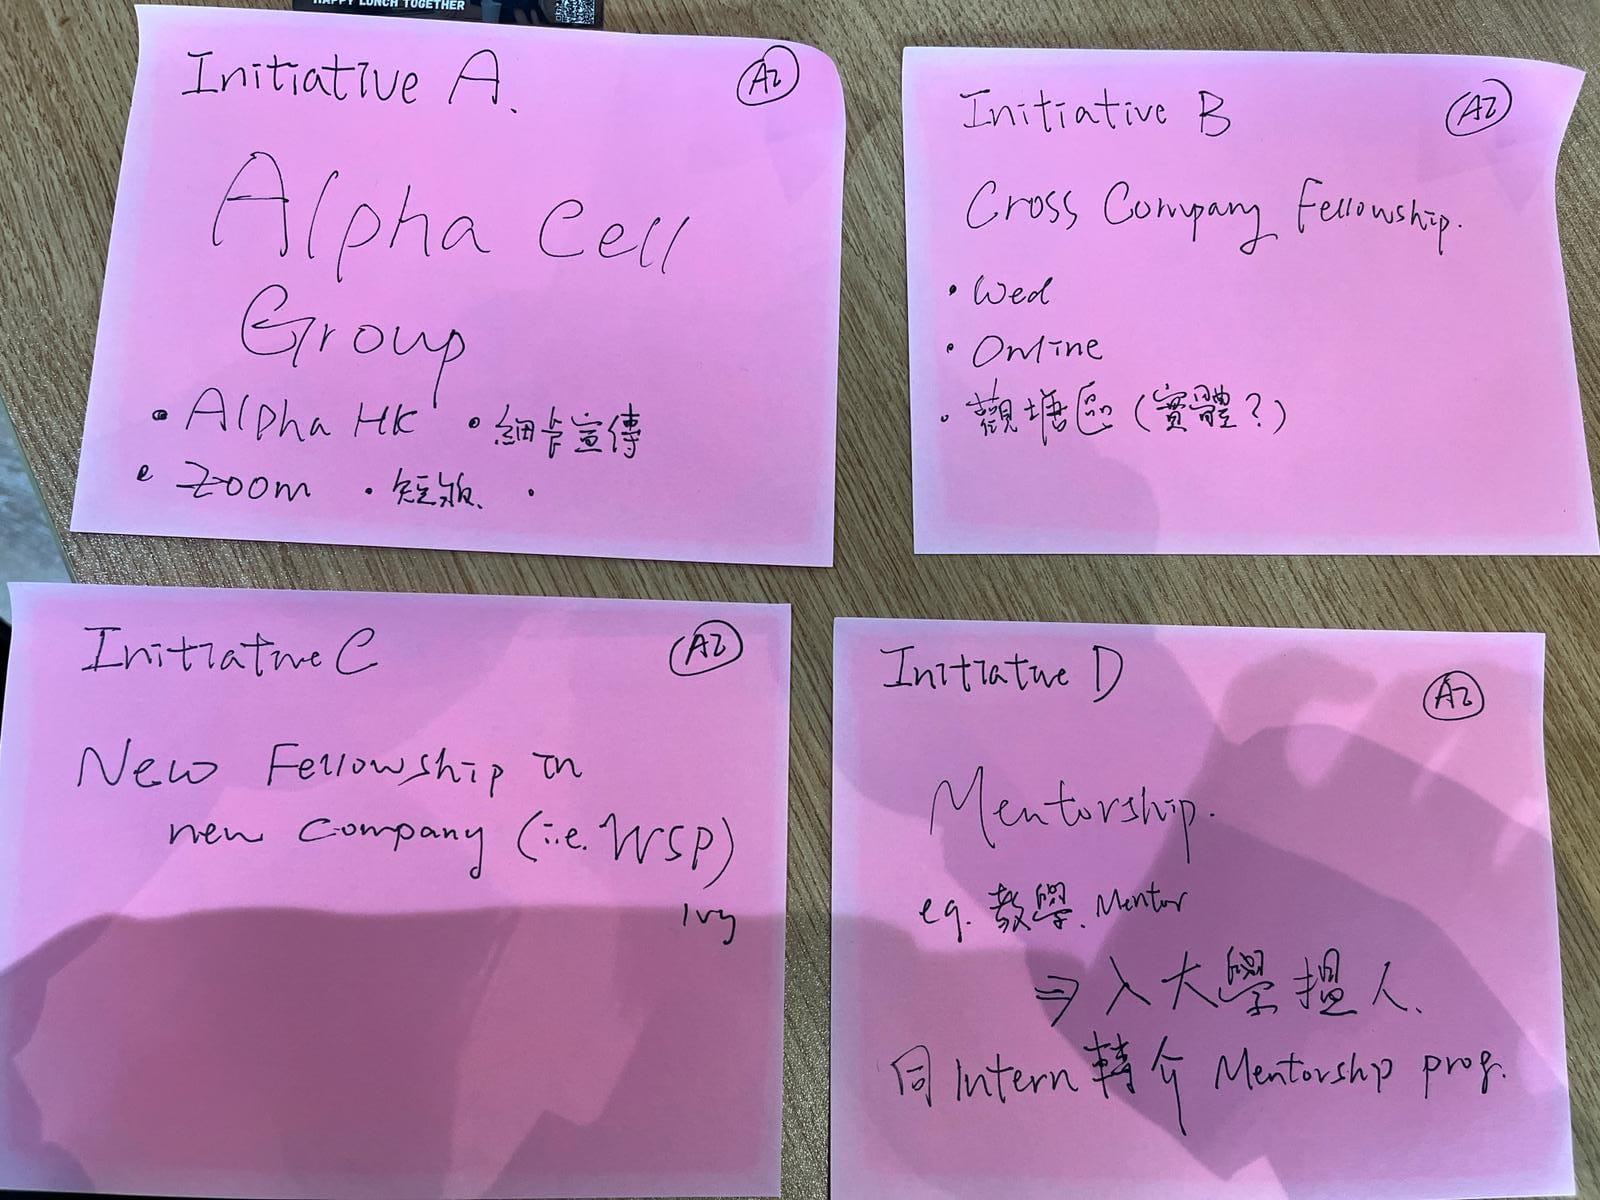 HAPPY LUNCH TOGETHER
Initiative A.
Alpha Cell
Group
• Alpha HK • 細卡宣傳
• Zoom • 短片 •
Initiative B
Cross Company Fellowship.
• Wed
• Online
• 觀塘區 (實體?)
Initiative C
New Fellowship in
new company (i.e. WSP)
Ivy
Initiative D
Mentorship.
eg. 教學. Mentor
⇒ 入大學搵人.
同 Intern 轉介 Mentorship prog.